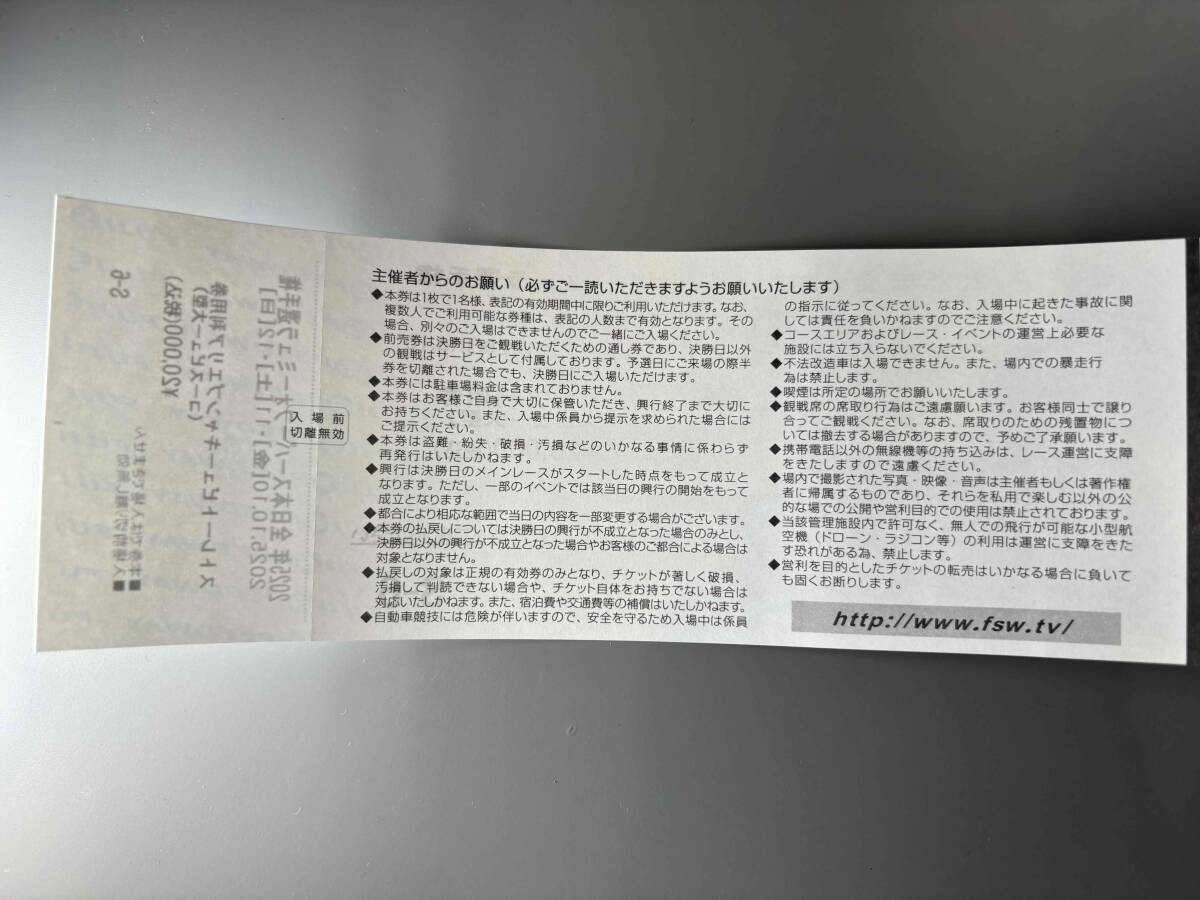 主催者からのお願い（必ずご一読いただきますようお願いいたします）
◆本券は1枚で1名様、表記の有効期間中に限りご利用いただけます。なお、
複数人でご利用可能な券種は、表記の人数まで有効となります。その
場合、別々のご入場はできませんのでご一緒にご入場ください。
◆前売券は決勝日をご観戦いただくための通し券であり、決勝日以外
の観戦はサービスとして付属しております。予選日にご来場の際半
券を切離された場合でも、決勝日にご入場いただけます。
◆本券には駐車場料金は含まれておりません。
◆本券はお客様ご自身で大切に保管いただき、興行終了まで大切に
お持ちください。また、入場中係員から提示を求められた場合には
ご提示ください。
◆本券は盗難・紛失・破損・汚損などのいかなる事情に係わらず
再発行はいたしかねます。
◆興行は決勝日のメインレースがスタートした時点をもって成立と
なります。ただし、一部のイベントでは該当日の興行の開始をもって
成立となります。
◆都合により相応な範囲で当日の内容を一部変更する場合がございます。
◆本券の払戻しについては決勝日の興行が不成立となった場合のみとし、
決勝日以外の興行が不成立となった場合やお客様のご都合による場合は
対象となりません。
◆払戻しの対象は正規の有効券のみとなり、チケットが著しく破損、
汚損して判読できない場合や、チケット自体をお持ちでない場合は
対応いたしかねます。また、宿泊費や交通費等の補償はいたしかねます。
◆自動車競技には危険が伴いますので、安全を守るため入場中は係員
の指示に従ってください。なお、入場中に起きた事故に関
しては責任を負いかねますのでご注意ください。
◆コースエリアおよびレース・イベントの運営上必要な
施設には立ち入らないでください。
◆不法改造車は入場できません。また、場内での暴走行
為は禁止します。
◆喫煙は所定の場所でお願いいたします。
◆観戦席の席取り行為はご遠慮願います。お客様同士で譲り
合ってご観戦ください。なお、席取りのための残置物につ
いては撤去する場合がありますので、予めご了承願います。
◆携帯電話以外の無線機等の持ち込みは、レース運営に支障
をきたしますので遠慮ください。
◆場内で撮影された写真・映像・音声は主催者もしくは著作権
者に帰属するものであり、それらを私用で楽しむ以外の公
的な場での公開や営利目的での使用は禁止されております。
◆当該管理施設内で許可なく、無人での飛行が可能な小型航
空機（ドローン・ラジコン等）の利用は運営に支障をきた
す恐れがある為、禁止します。
◆営利を目的としたチケットの転売はいかなる場合に負いて
も固くお断りします。
http://www.fsw.tv/
入場前
切離無効